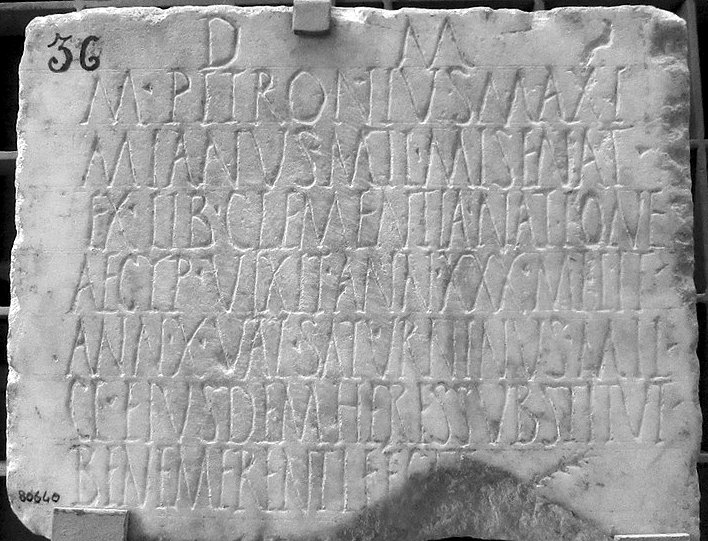 36
D M
M·PETRONIVS MAXI
MIANVS MIL·MISENAT·
EX·LIB·CLEMENTIA NATIONE
AEGYP·VIXIT·ANN·XXX·MILIT·
ANN·X·VAL·SATVRNINVS·MIL·
CL·EIVSDEM HERES SVBSTITVT
BENEMERENTI FECIT
80640